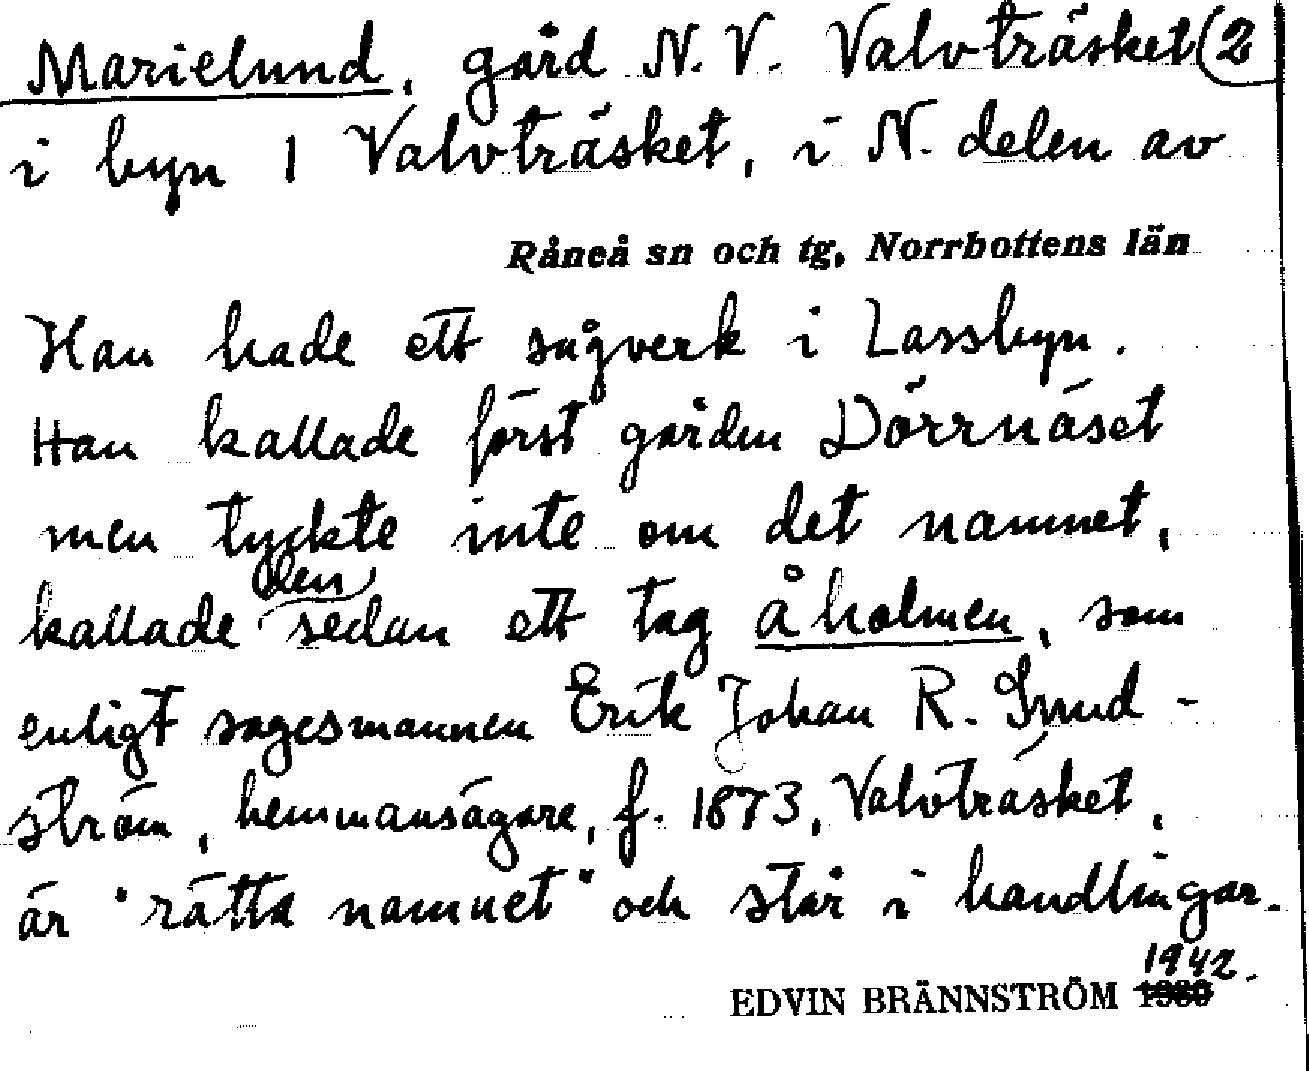 Marielund, gård N.V. Valvträsket (2
i byn 1 Valvträsket, i N. delen av
Råneå sn och tg, Norrbottens län
Han hade ett sågverk i Lassbyn.
Han kallade först gården Dörrnäset
men tyckte inte om det namnet,
kallade den sedan ett tag Åholmen, som
enligt sagesmannen Erik Johan R. Smud-
ström, hemmansägare, f. 1873, Valvträsket,
är "rätta namnet" och står i handlingar.
EDVIN BRÄNNSTRÖM 1942.